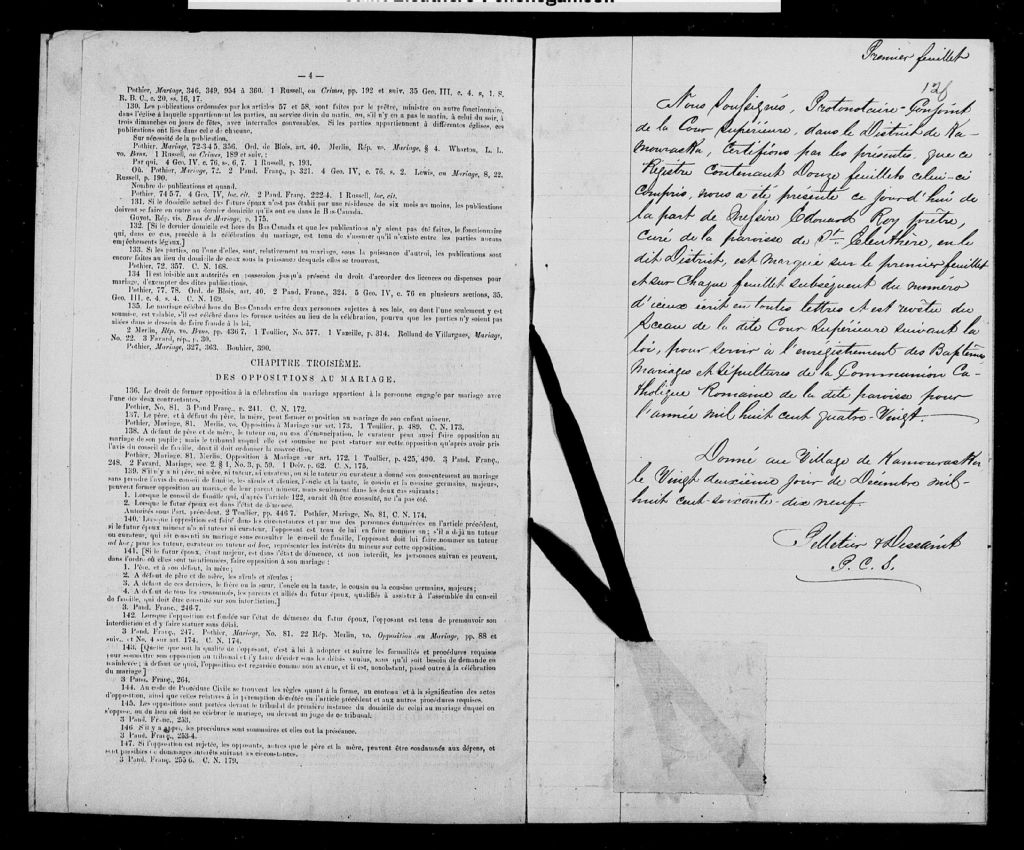 — 4 —
Pothier, Mariage, 346, 349, 954 à 360. 1 Russell, on Crimes, pp. 192 et suiv. 35 Geo. III, c. 4, s. 1. S.
R. B. C., c. 20, ss. 16, 17.
130. Les publications ordonnées par les articles 57 et 58, sont faites par le prêtre, ministre ou autre fonctionnaire,
dans l'église à laquelle appartiennent les parties, au service divin du matin, ou, s'il n'y en a pas le matin, à celui du soir, à
trois dimanches ou jours de fêtes, avec intervalles convenables. Si les parties appartiennent à différentes églises, ces
publications ont lieu dans celle de chacune.
Sur nécessité de la publication.
Pothier, Mariage, 72-3-4 5. 356. Ord. de Blois, art. 40. Merlin, Rép. vo. Mariage, § 4. Wharton, L. L.
vo. Bans. 1 Russell, on Crimes, 189 et suiv. :
Par qui. 4 Geo. IV, c. 76, s. 6, 7. 1 Russell, p. 193.
Où. Pothier, Mariage, 72. 2 Pand. Franç., p. 321. 4 Geo. IV, c. 76, s. 2. Lewis, on Mariage, 8, 22.
Russell, p. 190.
Nombre de publications et quand.
Pothier, 74 5-7. 4 Geo. IV, loc. cit. 2 Pand. Franç. 222-4. 1 Russell, loc. cit.
131. Si le domicile actuel des futurs époux n'est pas établi par une résidence de six mois au moins, les publications
doivent se faire en outre au dernier domicile qu'ils ont eu dans le Bas-Canada.
Guyot, Rép. vis. Bans de Mariage, p. 175.
132. [Si le dernier domicile est hors du Bas Canada et que les publications n'y aient pas été faites, le fonctionnaire
qui, dans ce cas, procède à la célébration du mariage, est tenu de s'assurer qu'il n'existe entre les parties aucuns
empêchements légaux.]
133. Si les parties, ou l'une d'elles, sont, relativement au mariage, sous la puissance d'autrui, les publications sont
encore faites au lieu du domicile de ceux sous la puissance desquels elles se trouvent.
Pothier, 72, 357. C. N. 168.
134 Il est loisible aux autorités en possession jusqu'à présent du droit d'accorder des licences ou dispenses pour
mariage, d'exempter des dites publications.
Pothier, 77, 78. Ord. de Blois, art. 40. 2 Pand. Franç., 324. 5 Geo. IV, c. 76 en plusieurs sections, 35.
Geo. III, c. 4, s. 4. C. N. 169.
135. Le mariage célébré hors du Bas Canada entre deux personnes sujettes à ses lois, ou dont l'une seulement y est
soumise, est valable, s'il est célébré dans les formes usitées au lieu de la célébration, pourvu que les parties n'y soient pas
allées dans le dessein de faire fraude à la loi.
2 Merlin, Rép. vo. Bans, pp. 436 7. 1 Toullier, No. 577. 1 Vazeille, p. 314. Rolland de Villargues, Mariage,
No. 22. 3 Favard, rép., p. 30.
Pothier, Mariage, 327, 363. Bouhier, 390.
CHAPITRE TROISIÈME.
DES OPPOSITIONS AU MARIAGE.
136. Le droit de former opposition à la célébration du mariage appartient à la personne engagée par mariage avec
l'une des deux contractantes.
Pothier, No. 81. 3 Pand Franç., p. 241. C. N. 172.
137. Le père, et à défaut du père, la mère, peut former opposition au mariage de son enfant mineur.
Pothier, Mariage, 81. Merlin, vo. Opposition à Mariage sur art. 173. 1 Toullier, p. 489. C. N. 173.
138. A défaut de père et de mère, le tuteur ou, au cas d'émancipation, le curateur peut aussi faire opposition au
mariage de son pupille ; mais le tribunal auquel elle est soumise ne peut statuer sur cette opposition qu'après avoir pris
l'avis du conseil de famille, dont il doit ordonner la convocation.
Pothier, Mariage, 81. Merlin, Opposition à Mariage sur art. 172. 1 Toullier, p. 425, 490. 3 Pand. Franç.,
248. 2 Favard, Mariage, sec. 2 § 1, No. 3, p. 59. 1 Delv. p. 62. C. N. 175.
139. S'il n'y a ni père, ni mère, ni tuteur, ni curateur, ou si le tuteur ou curateur a donné son consentement au mariage
sans prendre l'avis du conseil de famille, les aïeuls et aïeules, l'oncle et la tante, le cousin et la cousine germains, majeurs,
peuvent former opposition au mariage de leur parent mineur, mais seulement dans les deux cas suivants :
1. Lorsque le conseil de famille qui, d'après l'article 122, aurait dû être consulté, ne l'a pas été.
2. Lorsque le futur époux est dans l'état de démence.
Autorités sous l'art. précédent. 2 Toullier, pp. 446 7. Pothier, Mariage, No. 81, C. N. 174.
140. Lorsque l'opposition est faite dans les circonstances et par une des personnes énumérées en l'article précédent,
si le futur époux mineur n'a ni tuteur ni curateur, l'opposant est tenu de lui en faire nommer un ; s'il a déjà un tuteur
ou curateur, qui ait consenti au mariage sans consulter le conseil de famille, l'opposant doit lui faire nommer un tuteur
ad hoc ; pour les tuteur, curateur ou tuteur ad hoc, représenter les intérêts du mineur sur cette opposition.
141. [Si le futur époux, étant majeur, est dans l'état de démence, et non interdit, les personnes suivantes peuvent,
dans l'ordre où elles sont mentionnées, faire opposition à son mariage :
1. Père, et à son défaut, la mère ;
2. A défaut de père et de mère, les aïeuls et aïeules ;
3. A défaut de ces derniers, le frère ou la sœur, l'oncle ou la tante, le cousin ou la cousine germains, majeurs ;
4. A défaut de tous les susnommés, les parents et alliés du futur époux, qualifiés à assister à l'assemblée du conseil
de famille, qui doit être consulté sur son interdiction.]
3. Pand. Franc., 246-7.
142. Lorsque l'opposition est fondée sur l'état de démence du futur époux, l'opposant est tenu de promouvoir son
interdiction et d'y faire statuer sans délai.
3 Pand. Franç., 247. Pothier, Mariage, No. 81. 22 Rép. Merlin, vo. Opposition au Mariage, pp. 88 et
suiv., et No. 4 sur art. 174. C. N. 174.
143. [Quelle que soit la qualité de l'opposant, c'est à lui à adopter et suivre les formalités et procédures requises
pour soumettre son opposition au tribunal et l'y faire décider sous les délais voulus, sans qu'il soit besoin de demande en
mainlevée ; à défaut de quoi, l'opposition est regardée comme non avenue, et il est, nonobstant, passé outre à la célébration
du mariage.]
3 Pand. Franç., 264.
144. Au code de Procédure Civile se trouvent les règles quant à la forme, au contenu et à la signification des actes
d'opposition, ainsi que celles relatives à la péremption décrétée en l'article précédent et aux autres procédures requises.
145. Les oppositions sont portées devant le tribunal de première instance du domicile de celui au mariage duquel on
s'oppose, ou du lieu où doit se célébrer le mariage, ou devant un juge de ce tribunal.
3 Pand. Franc., 253.
146 S'il y a appel, les procédures sont sommaires et elles ont la préséance.
3 Pand. Franç., 253-4.
147. Si l'opposition est rejetée, les opposants, autres que le père et la mère, peuvent être condamnés aux dépens, et
sont passibles de dommages intérêts suivant les circonstances.
3 Pand. Franç. 255 6. C. N. 179.
Premier feuillet
126
Nous soussignés, Protonotaire-Conjoint
de la Cour Supérieure, dans le District de Ka-
mouraska, Certifions par les présentes, que ce
Registre Contenant Douze feuillets celui-ci
compris, nous a été présenté ce jourd'hui de
la part de Messire Edouard Roy prêtre,
curé de la paroisse de St. Eleuthère, en le
dit District, est marqué sur le premier feuillet
et sur Chaque feuillet subséquent du numero
d'iceux écrit en toutes lettres et est revêtu du
Sceau de la dite Cour Supérieure suivant la
loi, pour servir à l'enrégistrement des Baptêmes
Mariages et Sépultures de la Communion Ca-
tholique Romaine de la dite paroisse pour
l'année mil huit cent quatre-Vingt.
Donné au Village de Kamouraska
le Vingt deuxième jour de Decembre mil-
huit cent soixante-dix neuf.
Pelletier & Dessaint
P. C. S.